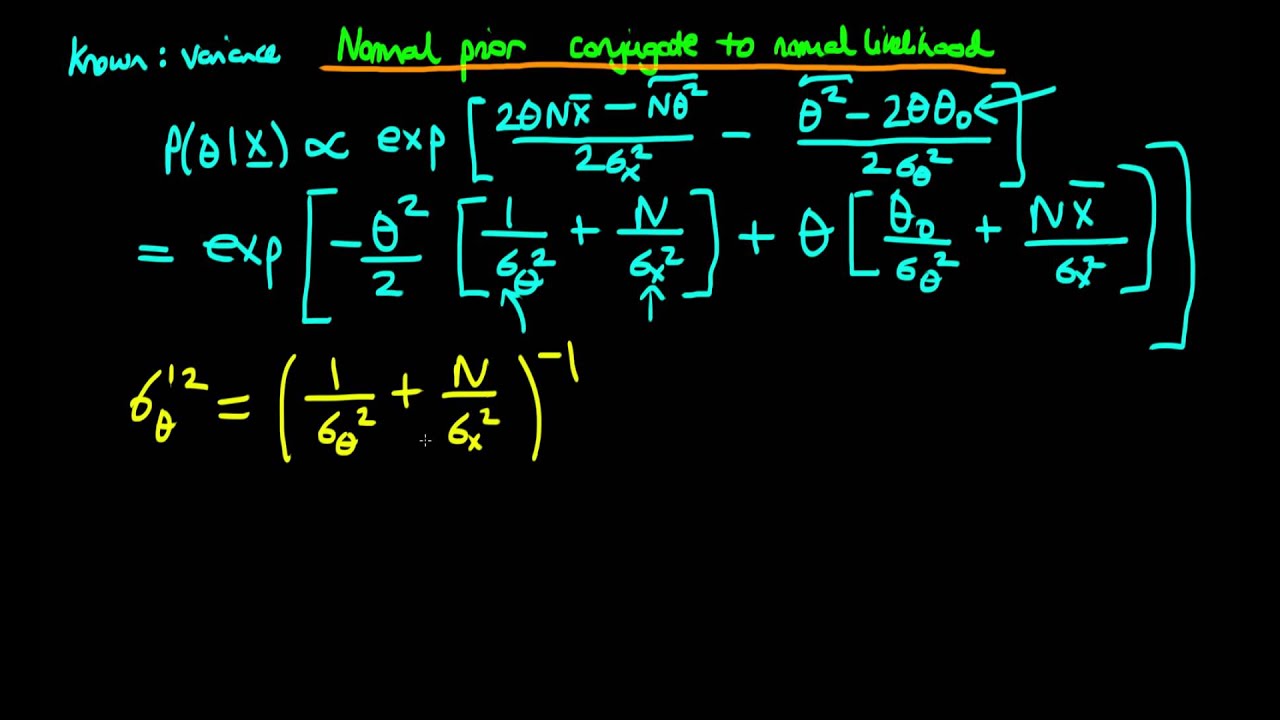 Known: variance Normal prior conjugate to normal likelihood
P(θ|X) ∝ exp [ (2θNx̄ − Nθ²)/(2σₓ²) − (θ² − 2θθ₀)/(2σ_θ²) ]
= exp [ −θ²/2 [ 1/σ_θ² + N/σₓ² ] + θ [ θ₀/σ_θ² + Nx̄/σₓ² ] ]
σ_θ'² = ( 1/σ_θ² + N/σₓ² )⁻¹